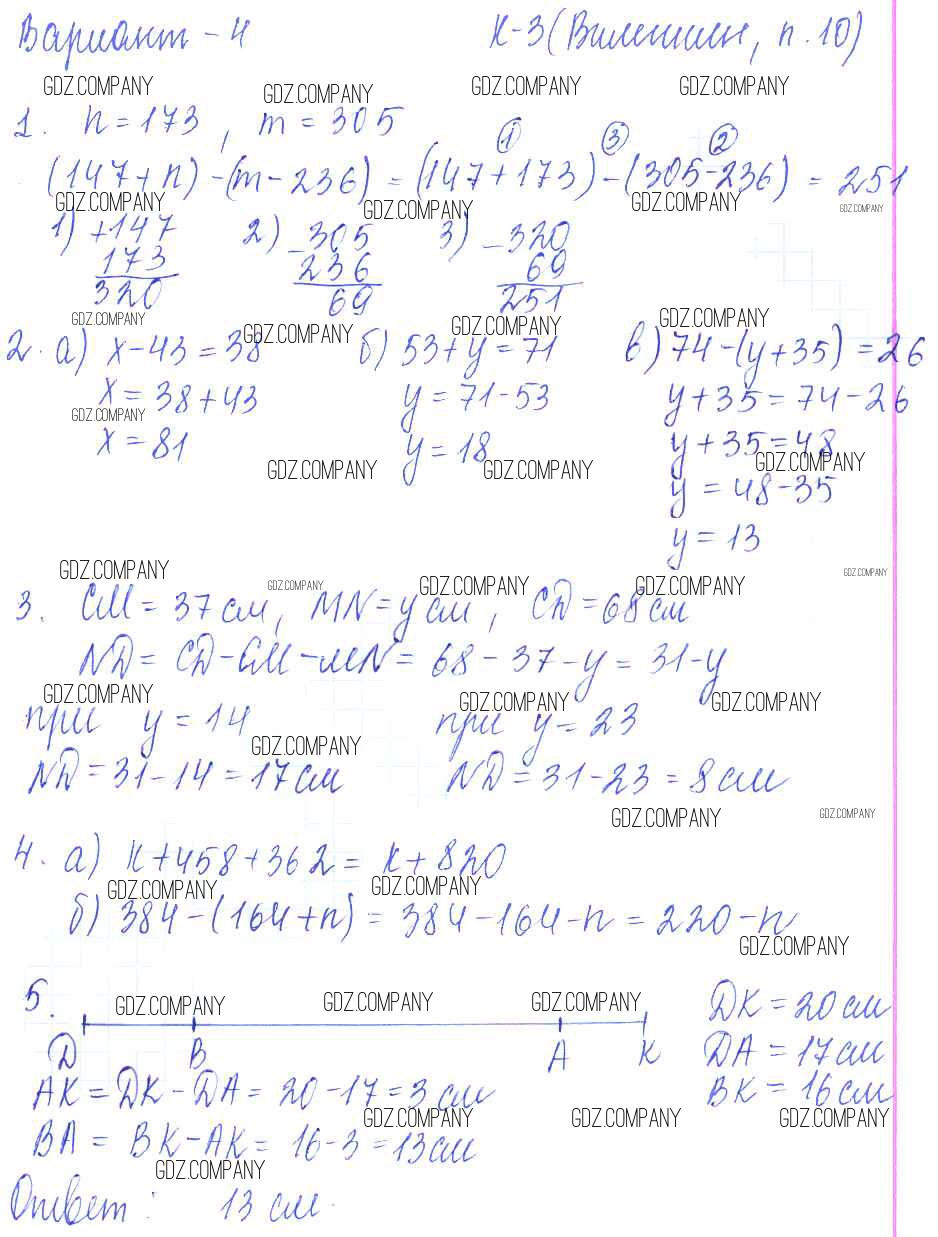 Вариант - 4 К-3 (Виленкин, п. 10)
GDZ.COMPANY GDZ.COMPANY GDZ.COMPANY GDZ.COMPANY
1. n = 173 , m = 305
① ③ ②
(147 + n) - (m - 236) = (147 + 173) - (305 - 236) = 251
GDZ.COMPANY GDZ.COMPANY GDZ.COMPANY GDZ.COMPANY
1) +147 2) -305 3) -320
173 236 69
320 69 251
GDZ.COMPANY GDZ.COMPANY GDZ.COMPANY GDZ.COMPANY
2. а) x - 43 = 38 б) 53 + y = 71 в) 74 - (y + 35) = 26
x = 38 + 43 y = 71 - 53 y + 35 = 74 - 26
GDZ.COMPANY
x = 81 y = 18 y + 35 = 48
GDZ.COMPANY GDZ.COMPANY GDZ.COMPANY
y = 48 - 35
y = 13
GDZ.COMPANY GDZ.COMPANY GDZ.COMPANY GDZ.COMPANY GDZ.COMPANY
3. CM = 37 см, MN = y см , CD = 68 см
ND = CD - CM - MN = 68 - 37 - y = 31 - y
GDZ.COMPANY GDZ.COMPANY GDZ.COMPANY
при y = 14 при y = 23
GDZ.COMPANY
ND = 31 - 14 = 17 см ND = 31 - 23 = 8 см
GDZ.COMPANY GDZ.COMPANY
4. а) k + 458 + 362 = k + 820
GDZ.COMPANY GDZ.COMPANY
б) 384 - (164 + n) = 384 - 164 - n = 220 - n
GDZ.COMPANY
5. GDZ.COMPANY GDZ.COMPANY GDZ.COMPANY DK = 20 см
D B A K DA = 17 см
AK = DK - DA = 20 - 17 = 3 см BK = 16 см
GDZ.COMPANY GDZ.COMPANY GDZ.COMPANY
BA = BK - AK = 16 - 3 = 13 см
GDZ.COMPANY
Ответ : 13 см.